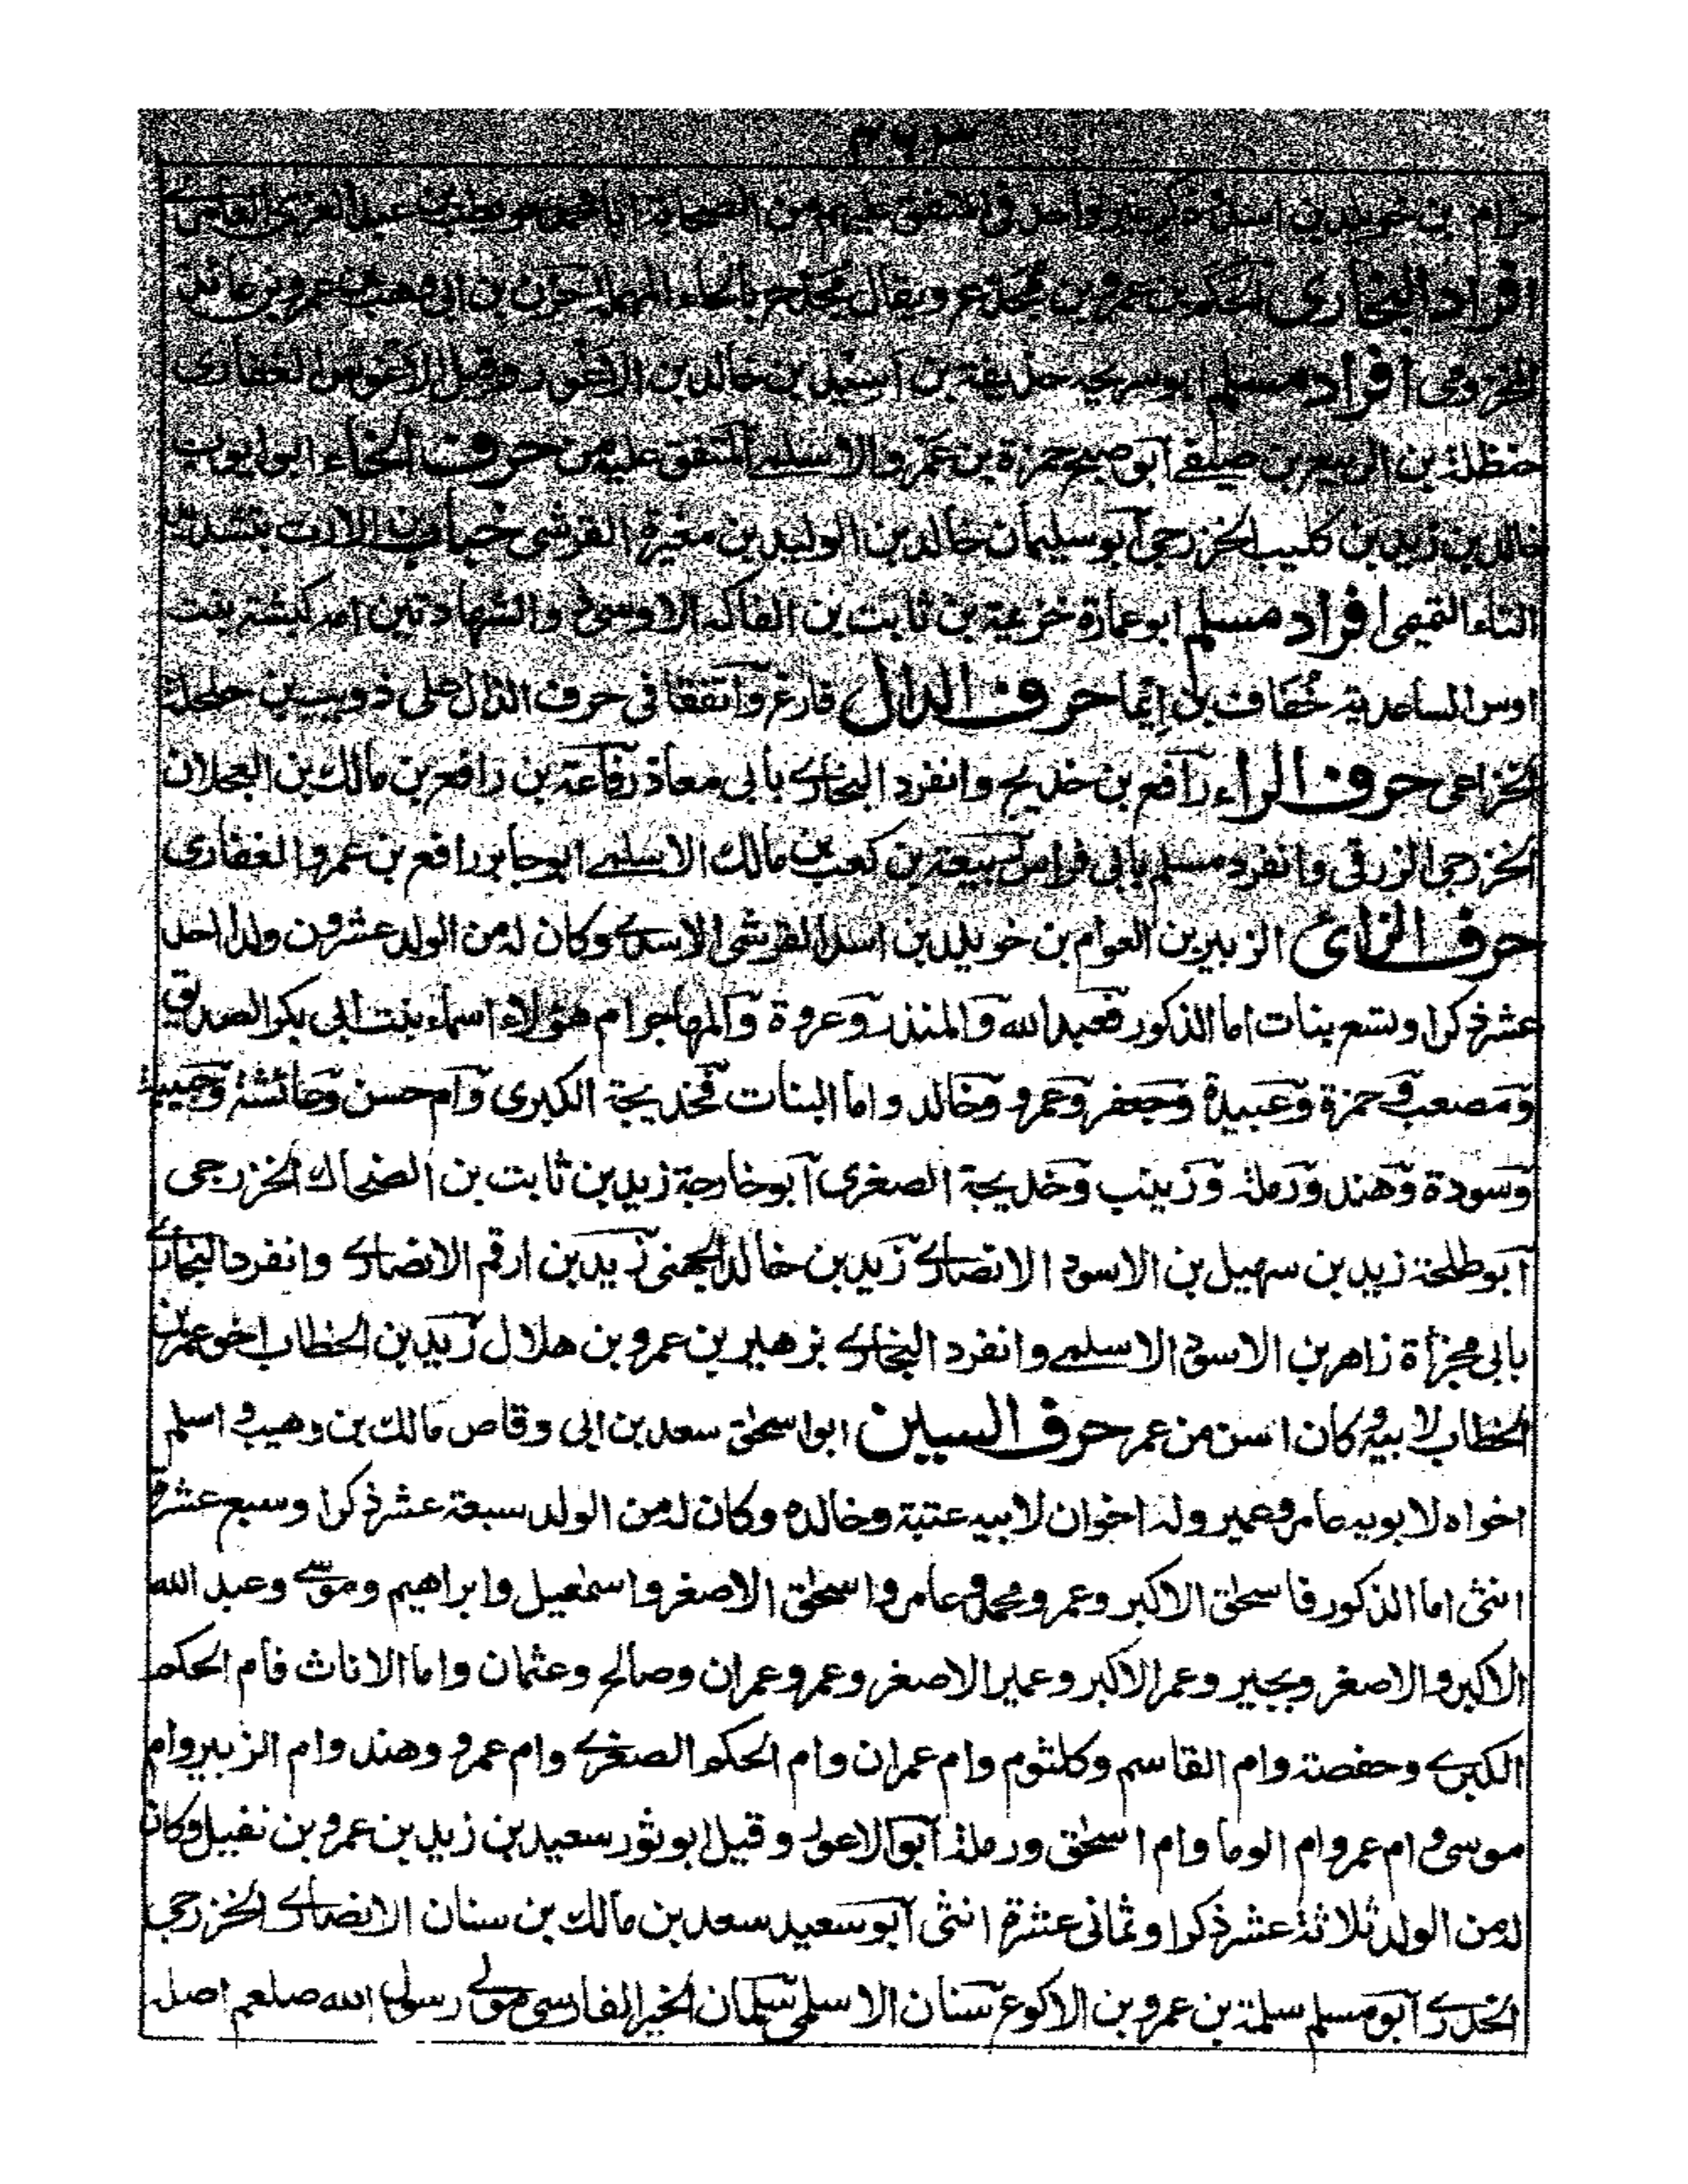 حزام بن خويلد بن اسد ذكر غير واحد في المتفق عليه من الصحابة ابا محمد حويطب بن عبد العزى العامري
افراد البخاري الحكم بن عمرو بن مجدع ويقال مجدح بالحاء المهملة حزن بن ابي وهب بن عمرو بن عائذ
المخزومي افراد مسلم ابو سريحة حذيفة بن اسيد بن خالد بن الاغوز وقيل الاغوس الغفاري
حنظلة بن الربيع بن صيفے ابو صبح حمزة بن عمرو الاسلمے المتفق عليه من حرف الخاء ابو ايوب
خالد بن زيد بن كليب الخزرجي ابو سليمان خالد بن الوليد بن مغيرة القرشي خباب بن الارت بتشديد
التاء التميمي افراد مسلم ابو عمارة خزيمة بن ثابت بن الفاكه الاوسي ذو الشهادتين امه كبشة بنت
اوس الساعدية خُفاف بن إيما حرف الدال فارغ واتفقا في حرف الذال على ذويب بن حلحلة
الخزاعي حرف الراء رافع بن خديج وانفرد البخاري بابي معاذ رفاعة بن رافع بن مالك بن العجلان
الخزرجي الزرقي وانفرد مسلم بابي فراس ربيعة بن كعب بن مالك الاسلمے ابو جابر رافع بن عمرو الغفاري
حرف الزاي الزبير بن العوام بن خويلد بن اسد القرشي الاسدي وكان له من الولد عشرون ولدا احد
عشر ذكرا وتسع بنات اما الذكور فعبد الله والمنذر وعروة والمهاجر ام هؤلاء اسماء بنت ابي بكر الصديق
ومصعب وحمزة وعبيدة وجعفر وعمرو وخالد واما البنات فخديجة الكبرى وام حسن وعائشة وحبيبة
وسودة وهند ورملة وزينب وخديجة الصغرى ابو خارجة زيد بن ثابت بن الضحاك الخزرجي
ابو طلحة زيد بن سهيل بن الاسود الانصاري زيد بن خالد الجهني زيد بن ارقم الانصاري وانفرد البخاري
بابي مجزأة زاهر بن الاسود الاسلمے وانفرد البخاري بزهير بن عمرو بن هلال زيد بن الخطاب اخو عمر بن
الخطاب لابيه وكان اسن من عمر حرف السين ابو اسحٰق سعد بن ابي وقاص مالك بن وهيب واسلم
اخواه لابويه عامر وعمير وله اخوان لابيه عتبة وخالد وكان له من الولد سبعة عشر ذكرا وسبع عشرة
انثى اما الذكور فاسحٰق الاكبر وعمر ومحمد وعامر واسحٰق الاصغر واسمٰعيل وابراهيم وموسى وعبد الله
الاكبر والاصغر وبجير وعمر الاكبر وعمير الاصغر وعمرو وعمران وصالح وعثمان واما الاناث فام الحكم
الكبرى وحفصة وام القاسم وكلثوم وام عمران وام الحكم الصغرے وام عمرو وهند وام الزبير وام
موسى وام عمرو ام الوما وام اسحٰق ورملة ابو الاعور وقيل ابو ثور سعيد بن زيد بن عمرو بن نفيل وكان
له من الولد ثلاثة عشر ذكرا وثماني عشرة انثى ابو سعيد سعد بن مالك بن سنان الانصاري الخزرجي
الخدري ابو مسلم سلمة بن عمرو بن الاكوع سنان الاسلمي سلمان الخير الفارسي مولى رسول الله صلعم اصله